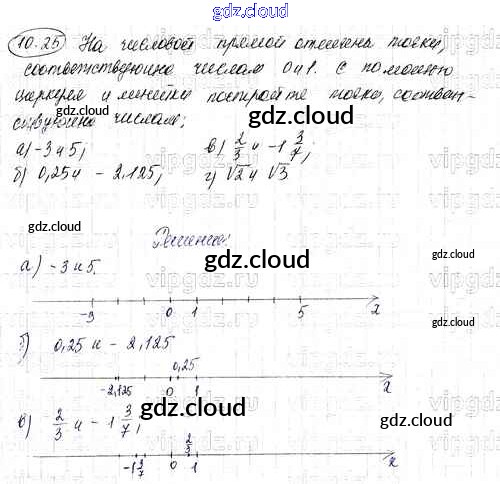 gdz.cloud
10.25 На числовой прямой отмечены точки,
соответствующие числам 0 и 1. С помощью
циркуля и линейки постройте точки, соответ-
ствующие числам:
а) -3 и 5; в) 2/3 и -1 3/7;
б) 0,25 и -2,125; г) √2 и √3
gdz.cloud gdz.cloud
Решение:
gdz.cloud
а) -3 и 5.
gdz.cloud
-3 0 1 5 x
gdz.cloud
б) 0,25 и -2,125
0,25
-2,125 0 1 x
gdz.cloud gdz.cloud
в) 2/3 и -1 3/7;
2/3
-1 3/7 0 1 x